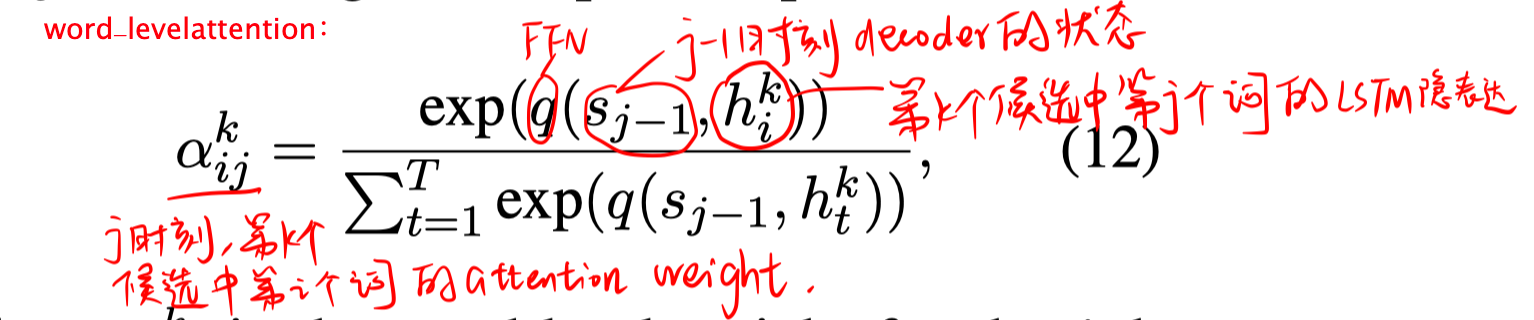 word_levelattention:
FFN j-1时刻 decoder的状态
第k个候选中第j个词的LSTM隐表达
α_{ij}^k = exp(q(s_{j-1}, h_i^k)) / ∑_{t=1}^T exp(q(s_{j-1}, h_t^k)), (12)
j时刻,第k个
候选中第i个词的attention weight.